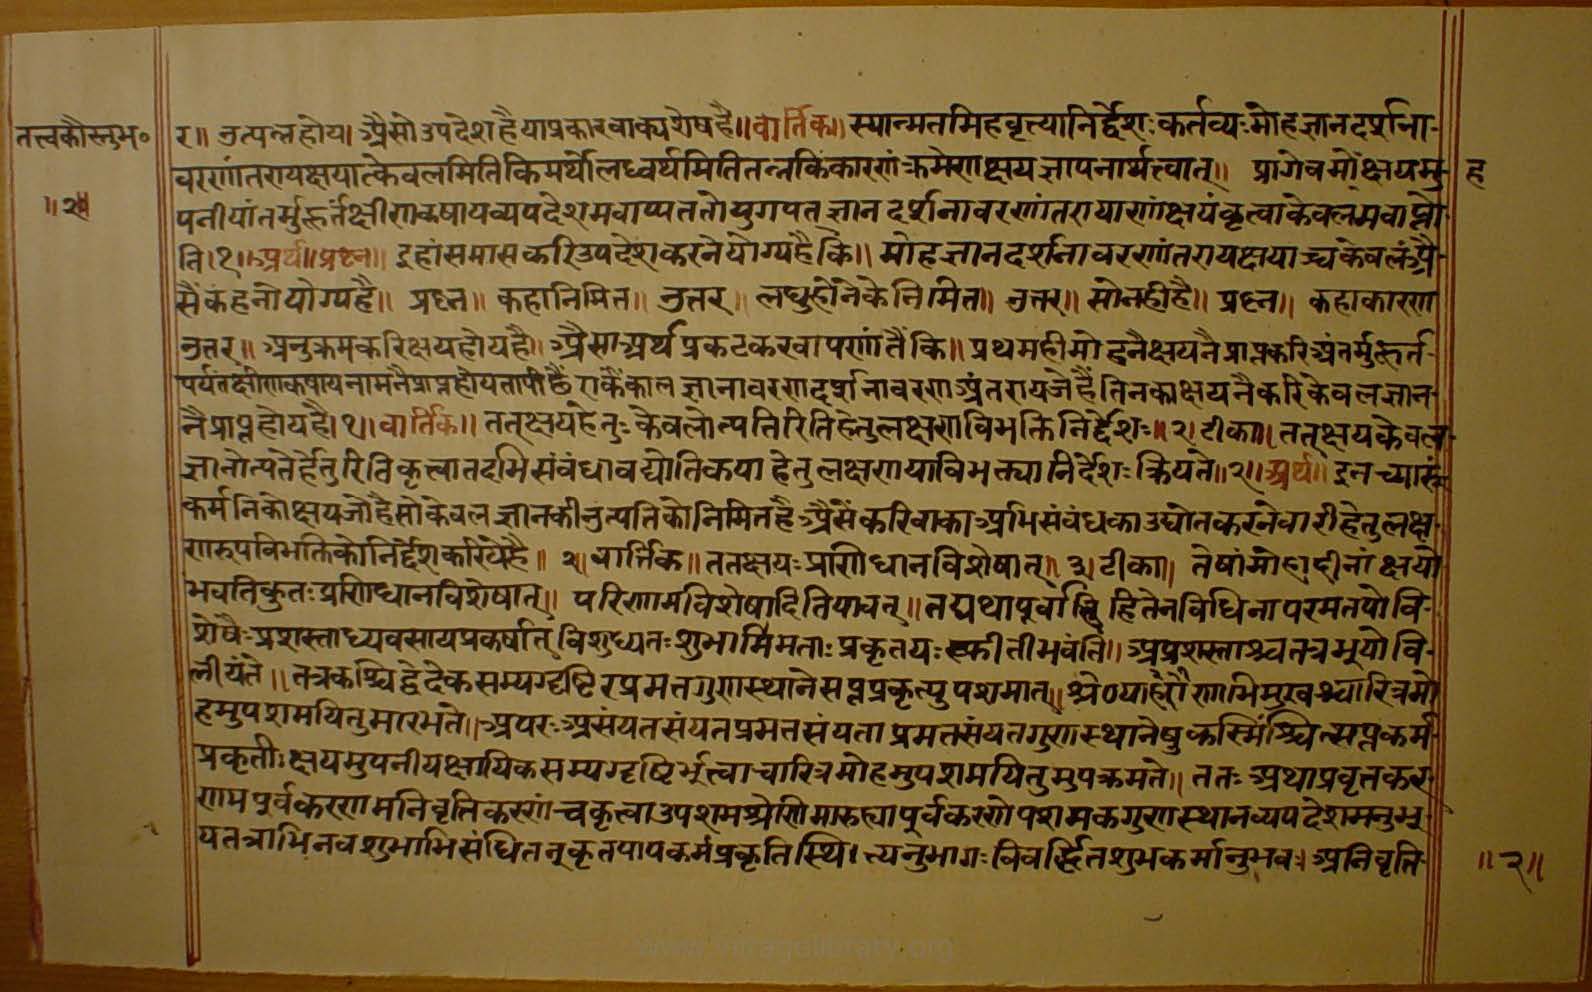 तत्त्वकौस्तुभ॰
॥२॥
र॥ उत्पन्नहोय। अैसोउपदेशहैयाप्रकारवाक्यशेषहै॥वार्तिक॥ स्यान्मतमिहवृत्त्यानिर्द्देशःकर्तव्यःमोहज्ञानदर्शना-
वरणांतरायक्षयात्केवलमितिकिमर्थोलघ्वर्थमितितन्नकिंकारणंक्रमेणक्षयज्ञापनार्थत्वात्॥ प्रागेवमोंक्षयमु- ह
पनीयांतर्मुहूर्तंक्षीणकषायव्यपदेशमवाप्यततोयुगपत्ज्ञानदर्शनावरणांतरायाणांक्षयंकृत्वाकेवलमवाप्नो
ति।१।अर्थ॥प्रश्न॥ इहांसमासकरिउपदेशकरनेयोग्यहैकि॥ मोहज्ञानदर्शनावरणांतरायक्षयाच्चकेवलंअै
सैंकहनोयोग्यहै॥ प्रश्न॥ कहानिमित॥ उतर॥ लघुहोनेकेनिमित॥ उत्तर॥ सोनहीहै॥ प्रश्न॥ कहाकारण
उत्तर॥ अनुक्रमकरिक्षयहोयहै॥ अैसाअर्थप्रकटकरवापणांतैंकि॥ प्रथमहीमोहनैक्षयनैप्राप्तकरिअंतर्मुहूर्त-
पर्यंतक्षीणकषायनामनैप्राप्तहोयतापीछैंएकैंकालज्ञानावरणदर्शनावरणअंतरायजेहैंतिनकाक्षयनैकरिकेवलज्ञान-
नैप्राप्तहोयहै।१।वार्तिक॥ तत्क्षयहेतुःकेवलोत्पत्तिरितिहेतुलक्षणविभक्तिनिर्द्देशः॥२।टीका॥ तत्क्षयकेवल
ज्ञानोत्पतेर्हेतुरितिकृत्वातदभिसंबंधावद्योतिकयाहेतुलक्षणयाविभक्त्यानिर्देशःक्रियते॥२॥अर्थ॥ इनच्यारूं
कर्मनिकोक्षयजोहैसोकेवलज्ञानकीउत्पतिकोनिमितहैअैसैंकरिवाकाअभिसंबंधकाउद्योतकरनेवारीहेतुलक्ष
णरुपविभक्तिकोनिर्द्देशकरियेहै॥ २।वार्त्तिक॥ ततक्षयःप्रणिधानविशेषात्॥३।टीका॥ तेषांमोहादीनांक्षयो
भवतिकुतःप्रणिधानविशेषात्॥ परिणामविशेषादितियावत्॥ तद्यथापूर्वा हितेनविधिनापरमतपोवि-
शेषैःप्रशस्ताध्यवसायप्रकर्षात्विशुध्यतःशुभाभिमताःप्रकृतयःस्फीतीभवंति॥ अप्रशस्ताश्चतत्रभूयोवि-
लीयंते॥ तत्रकश्चिद्वेदेकसम्यग्दृष्टिरप्रमत्तगुणस्थानेसप्तप्रकृत्युपशमात्॥ श्रेण्यारोहणाभिमुखश्चारित्रमो
हमुपशमयितुमारभते॥ अपरःअसंयतसंयतप्रमत्तसंयताप्रमत्तसंयतगुणस्थानेषुकस्मिंश्चित्सप्तकर्म
प्रकृतीःक्षयमुपनीयक्षायिकसम्यग्दृष्टिर्भूत्वाचारित्रमोहमुपशमयितुमुपक्रमते॥ ततःअथाप्रवृत्तकर-
णमपूर्वकरणमनिवृत्तिकरणंचकृत्वाउपशमश्रेणिमारुह्यापूर्वकरणोपशमकगुणस्थानव्यपदेशमनुभू-
यतत्राभिनवशुभाभिसंधितनूकृतपापकर्मप्रकृतिस्थि।त्यनुभागःविवर्द्धितशुभकर्मानुभवः।अनिवृत्ति-
॥२॥